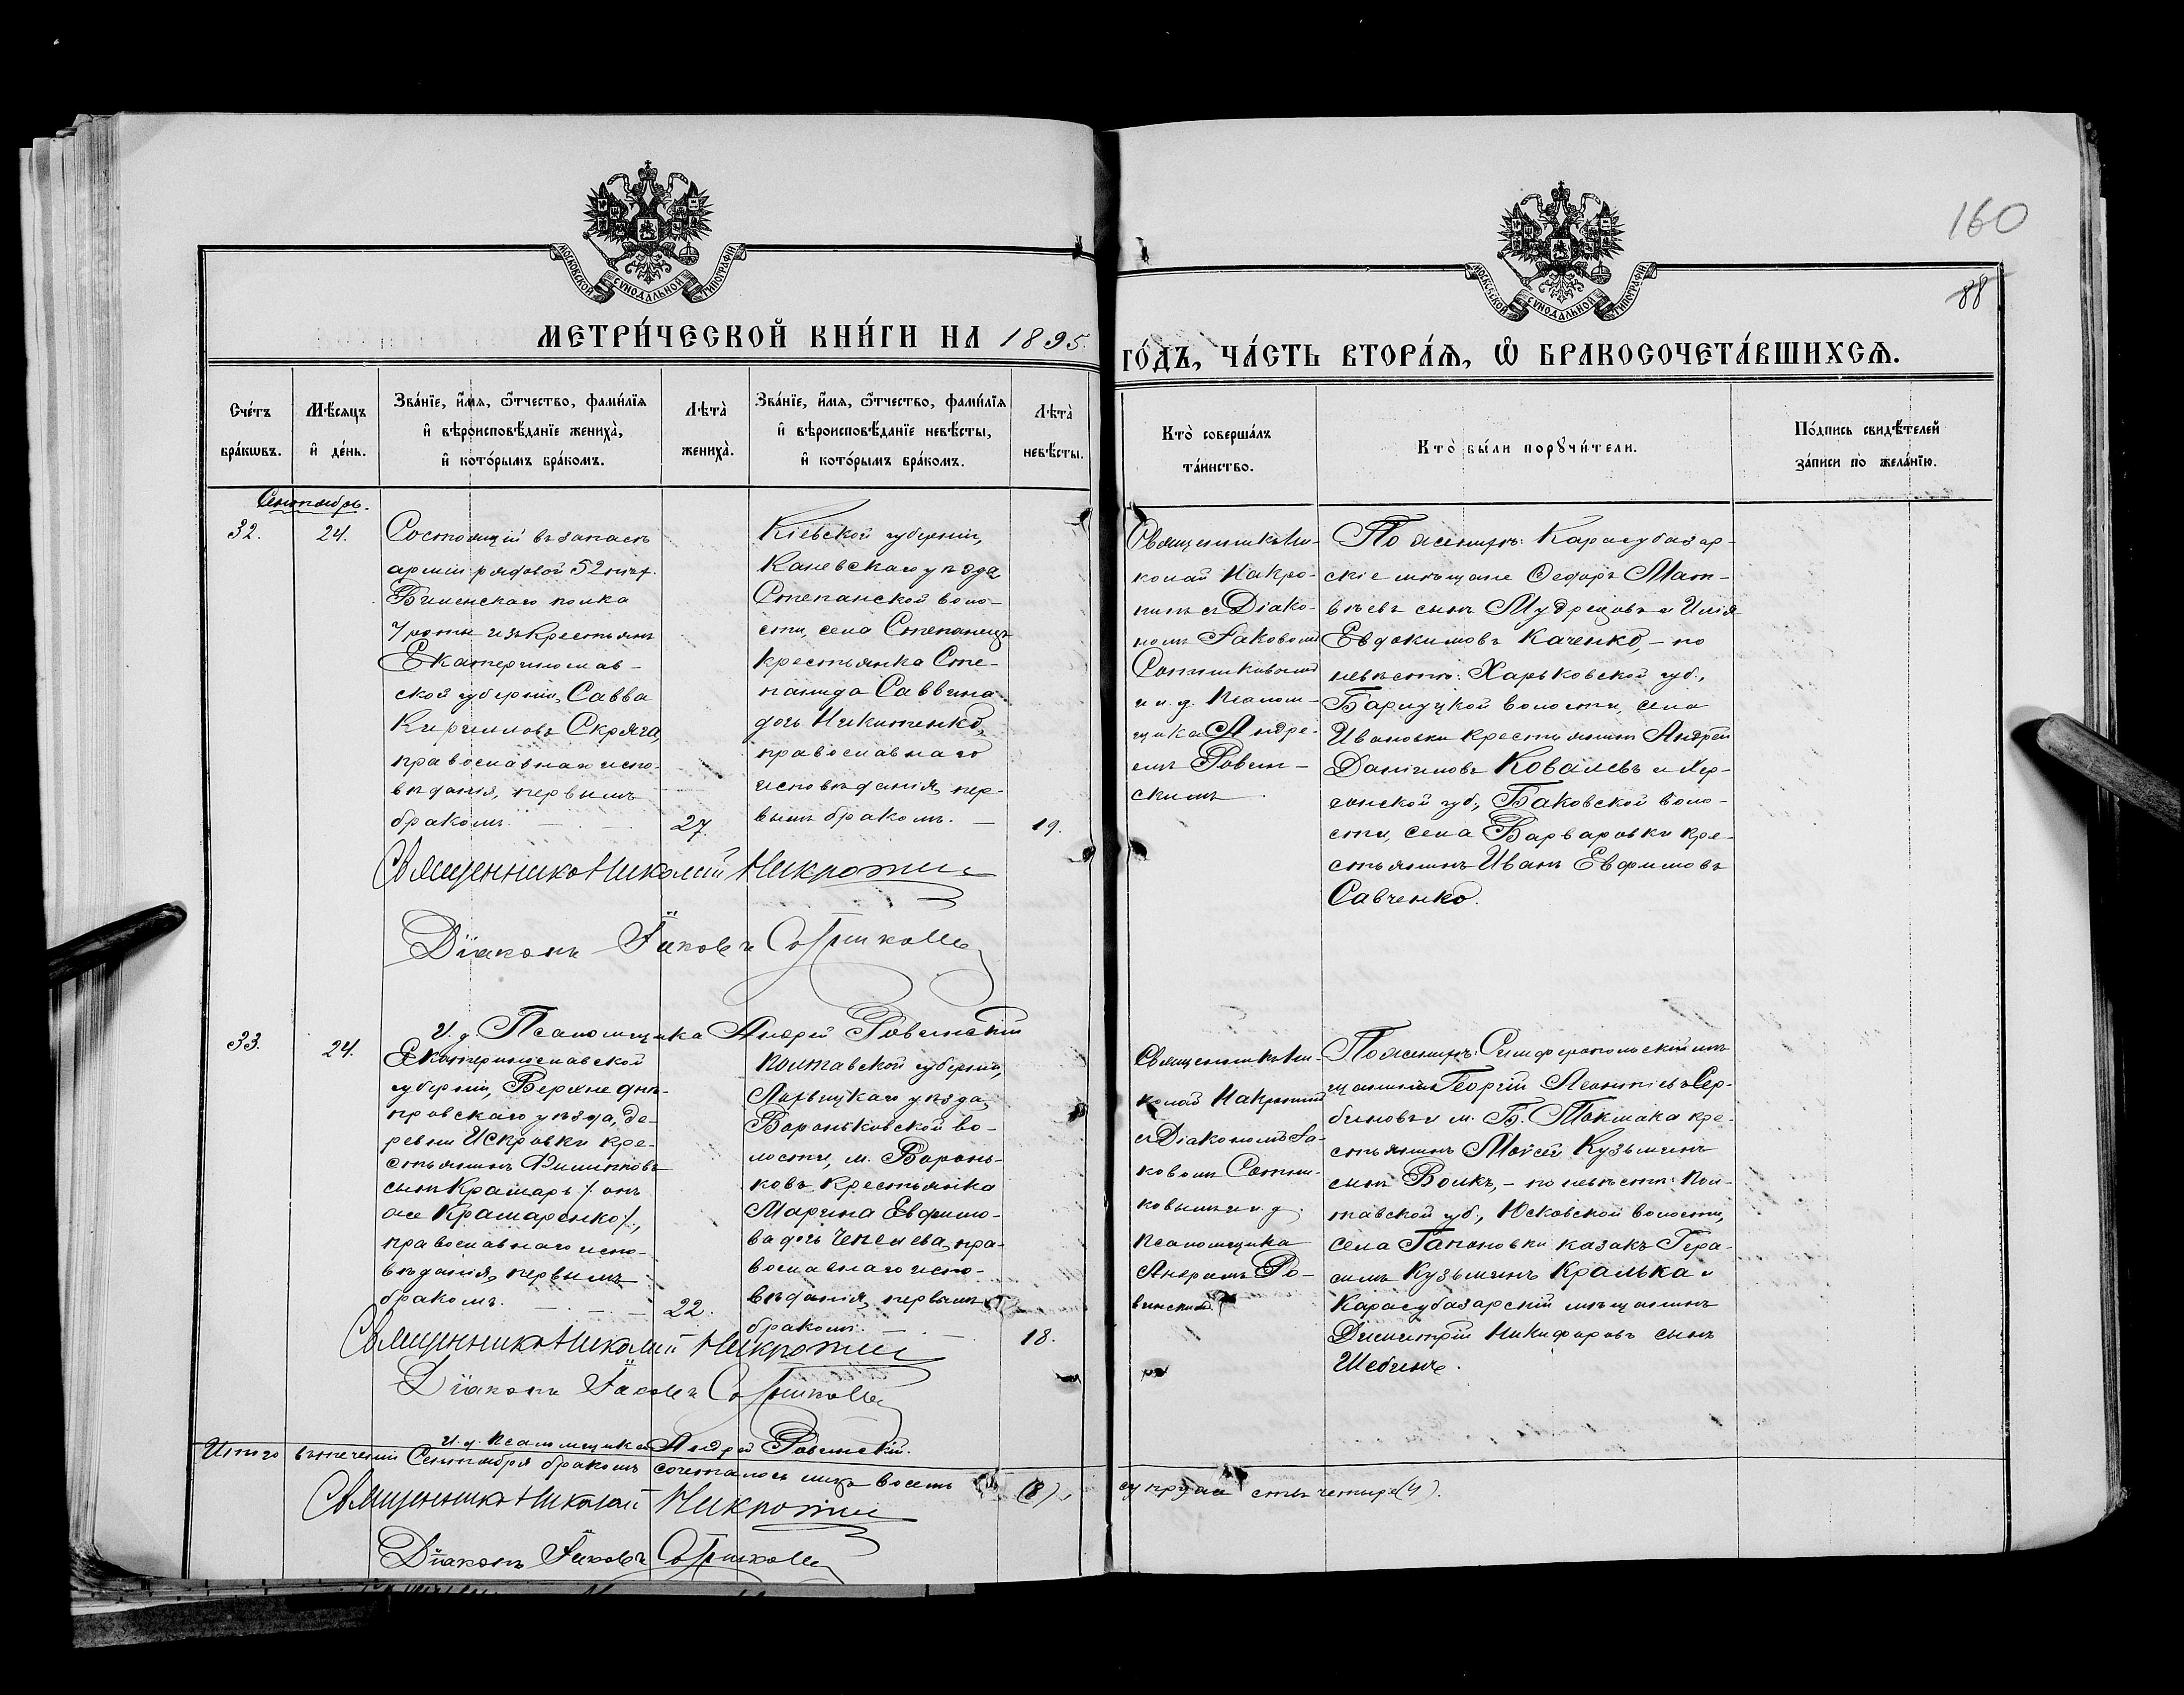 160
88
МОСКОВСКОЙ СѴНОДАЛЬНОЙ ТИПОГРАФІИ
МОСКОВСКОЙ СѴНОДАЛЬНОЙ ТИПОГРАФІИ
МЕТРИ́ЧЕСКОЙ КНИ́ГИ НА 1895
ГО́ДЪ, ЧА́СТЬ ВТОРА́Я, Ѽ БРАКОСОЧЕТА́ВШИХСЯ.
Сче́тъ
бра́кѡвъ.
Мѣ́сяцъ
и҆ де́нь.
Зва́нїе, и҆́мя, ѻ҆́тчество, фами́лїя
и҆ вѣроисповѣ́данїе жениха̀,
и҆ кото́рымъ бра́комъ.
Лѣта̀
жениха̀.
Зва́нїе, и҆́мя, ѻ҆́тчество, фами́лїя
и҆ вѣроисповѣ́данїе невѣ́сты,
и҆ кото́рымъ бра́комъ.
Лѣта̀
невѣ́сты.
Кто̀ соверша́лъ
та́инство.
Кто̀ бы́ли порꙋчи́тели.
По́дпись свидѣ́телей
за́писи по жела́нїю.
Сентябрь.
32.
24.
Состоящій въ запасѣ
арміи рядовой 52 пѣх.
Виленскаго полка
7 роты изъ крестьянъ
Екатеринослав-
ской губерніи, Савва
Кирилловъ Скряга,
православнаго испо-
вѣданія, первымъ
бракомъ.
27.
Кіевской губерніи,
Каневскаго уѣзда
Степанской воло-
сти, села Степанецъ
крестьянка Сте-
панида Саввина
дочь Никитенко,
православнаго
исповѣданія, пер-
вымъ бракомъ.
19.
Священникъ Ни-
колай Макро-
с Діако-
номъ Іаковомъ
Сотниковымъ
и и. д. Псалом-
щика Андре-
емъ Ровин-
скимъ
По женихѣ: Карасубазар-
скіе мѣщане Ѳедоръ Мат-
вѣевъ сынъ Мудрецовъ и Илія
Евдокимовъ Каченко, - по
невѣстѣ: Харьковской губ.,
волости, села
Ивановки крестьянинъ Андрей
Даниловъ Ковалевъ и Хер-
сонской губ., Баковской воло-
сти, села Варваровки кре-
стьянинъ Иванъ Евфимовъ
Савченко.
Священникъ Николай
Діаконъ Іаковъ Сотниковъ
И. д. Псаломщика Андрей Ровинскій
33.
24.
Екатеринославской
губерніи, Верхнеднѣ-
провскаго уѣзда, де-
ревни Искровки кре-
стьянинъ Филипповъ
сынъ Крамарь /: онъ
же Крамаренко :/,
православнаго испо-
вѣданія, первымъ
бракомъ.
22.
Полтавской губерніи,
уѣзда,
Вороньковской во-
лости, м. Воронь-
ковъ крестьянка
Марина Евфимо-
ва дочь Чепелева, пра-
вославнаго испо-
вѣданія, первымъ
бракомъ.
18.
Священникъ Ни-
колай
с Діакономъ Іа-
ковомъ Сотни-
ковымъ и и. д.
Псаломщика
Андреемъ Ро-
винскимъ.
По женихѣ: Симферопольскій мѣ-
щанинъ Георгій Леонтіевъ Сер-
биновъ и м. Б. Токмака кре-
стьянинъ Моѵсей Кузьминъ
сынъ Волкъ, - по невѣстѣ: Пол-
тавской губ., Юсковской волости,
села Гапоновки казакъ Гера-
симъ Кузьминъ Кралька и
Карасубазарскій мѣщанинъ
Димитрій Никифоровъ сынъ
Шебинъ.
Священникъ Николай
Діаконъ Іаковъ Сотниковъ
И. д. Псаломщика Андрей Ровинскій.
Итого въ теченіи Сентября бракомъ сочеталось лицъ восемь (8), супружествъ четыре (4).
Священникъ Николай
Діаконъ Іаковъ Сотниковъ